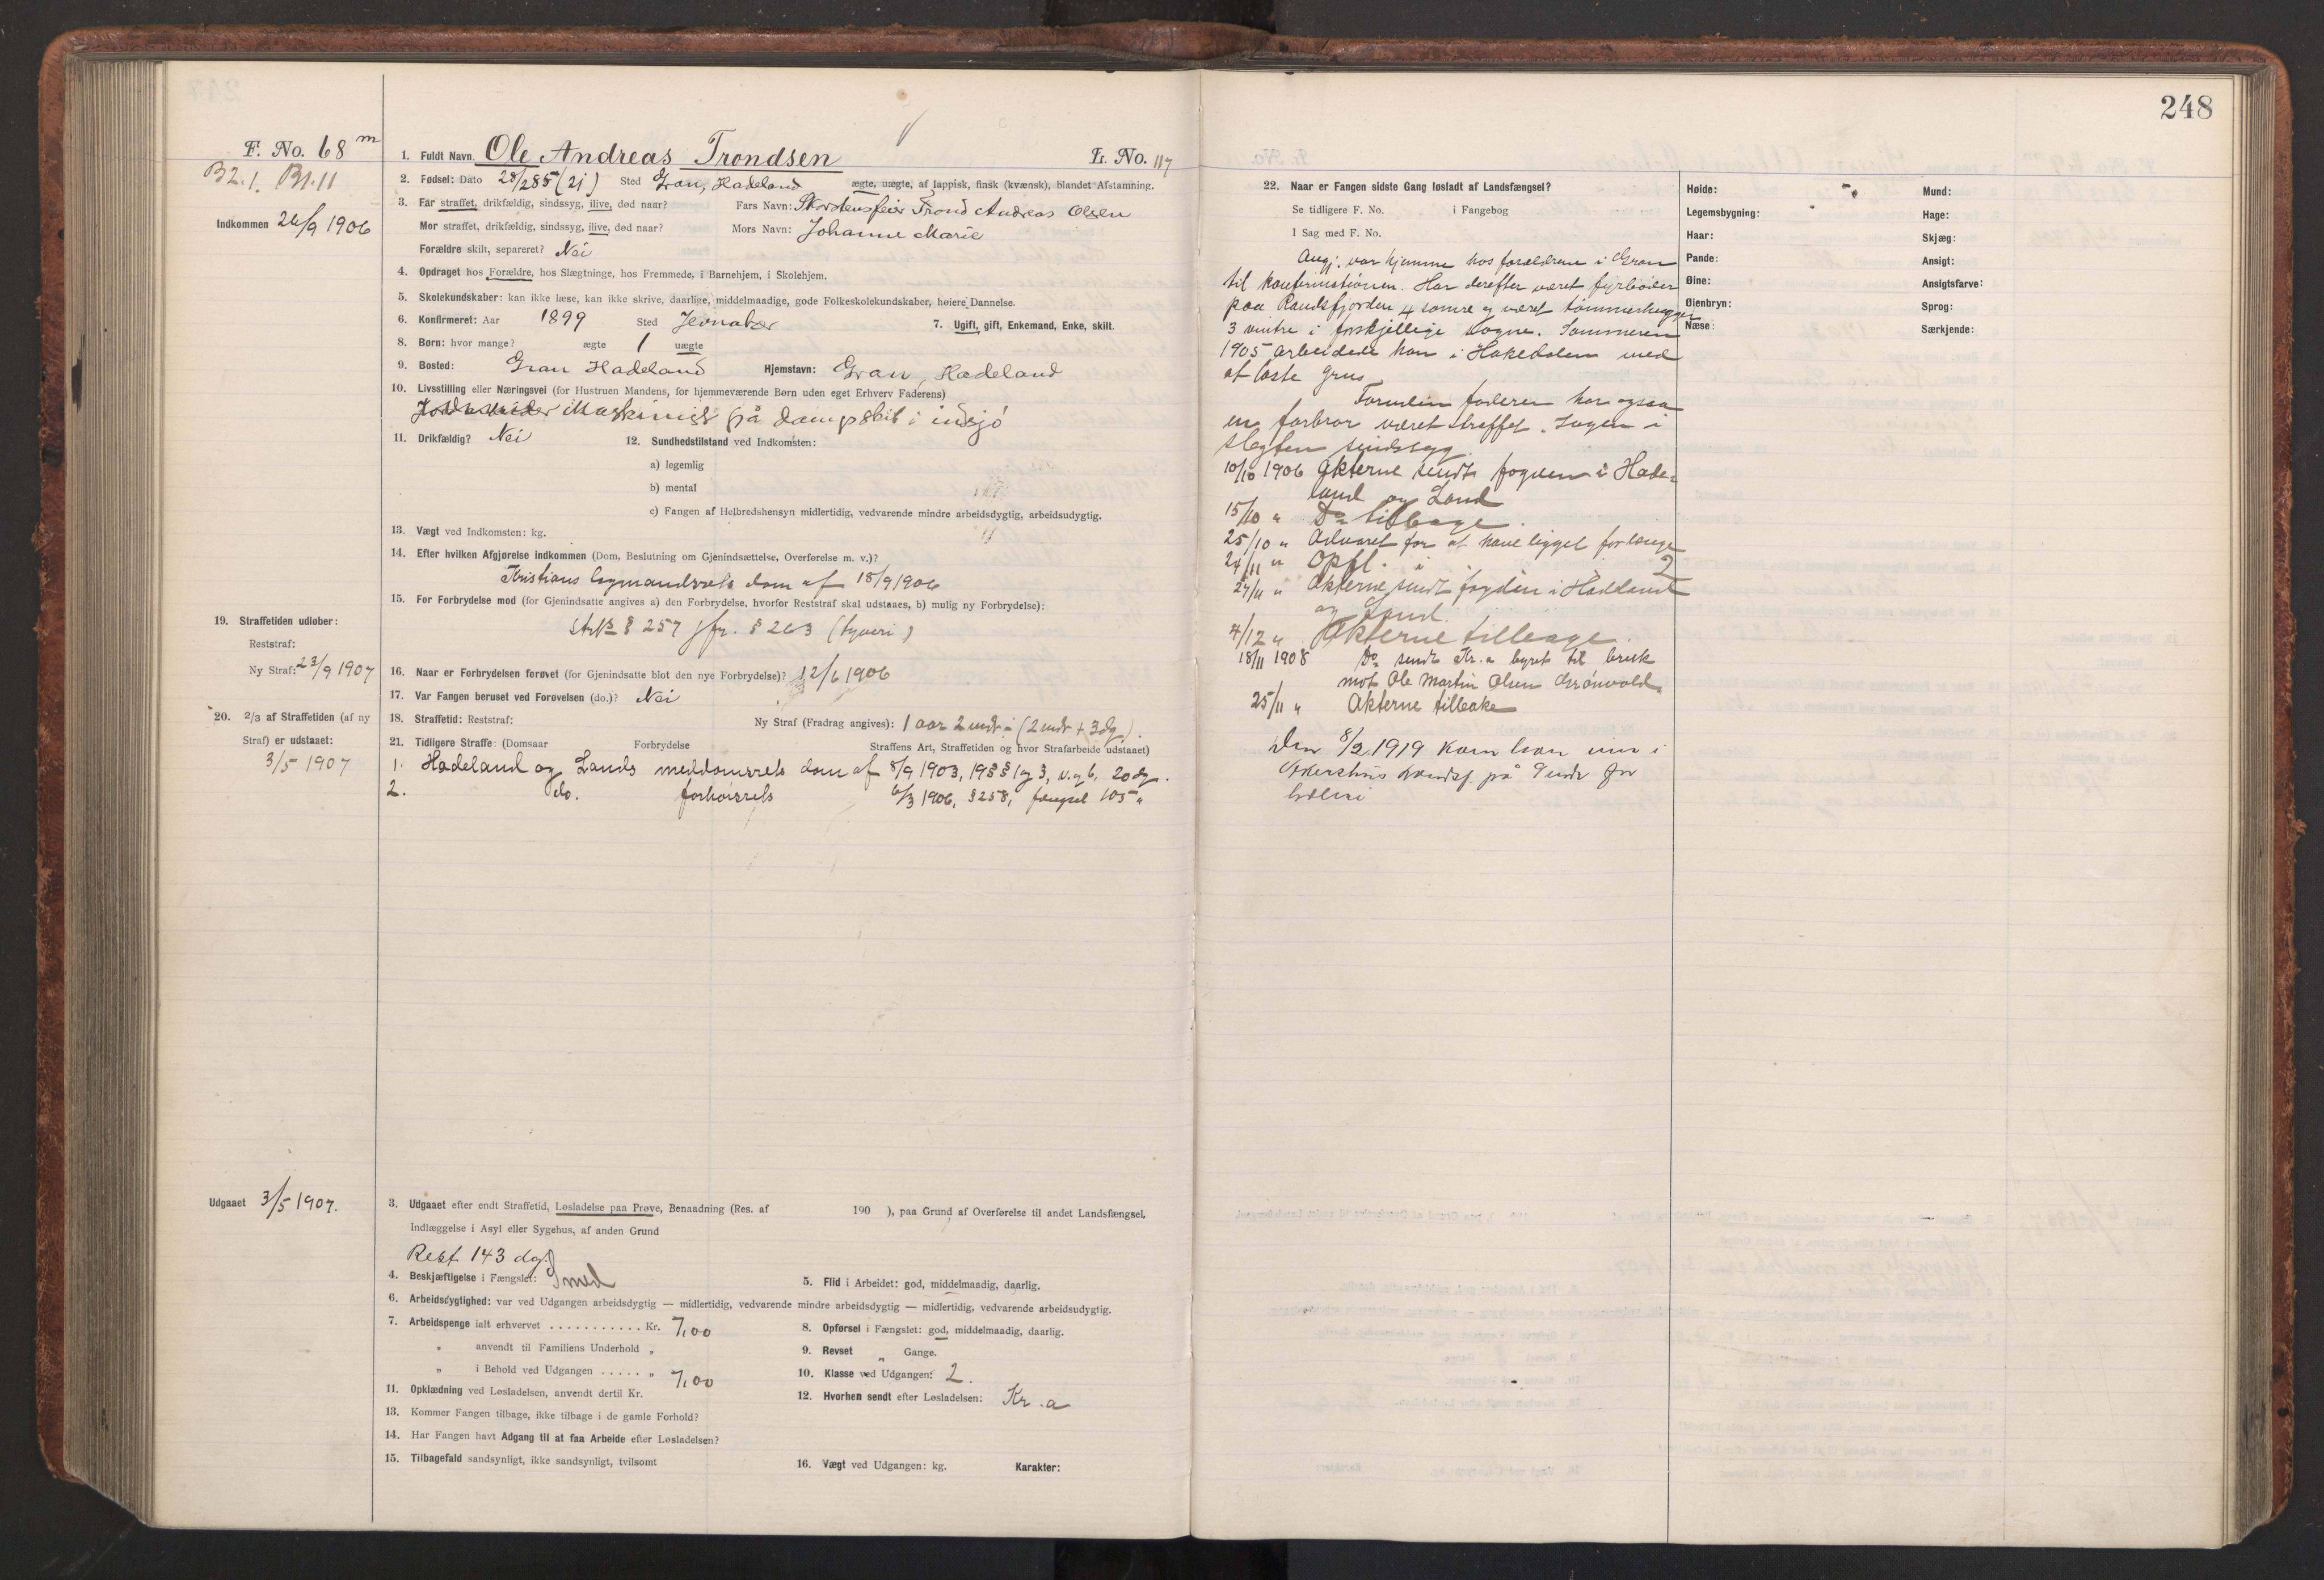 F. No. 68 m
B2.1. B1.11
Indkommen 26/9 1906
1. Fuldt Navn. Ole Andreas Trondsen L. No. 117
2. Fødsel: Dato 28/2 85 (21) Sted Gran, Hadeland ægte, uægte, af lappisk, finsk (kvænsk), blandet Afstamning.
3. Far straffet, drikfældig, sindssyg, ilive, død naar? Fars Navn: Skorstensfeier Trond Andreas Olsen
Mor straffet, drikfældig, sindssyg, ilive, død naar? Mors Navn: Johanne Marie
Forældre skilt, separeret? Nei
4. Opdraget hos Forældre, hos Slægtninge, hos Fremmede, i Barnehjem, i Skolehjem.
5. Skolekundskaber: kan ikke læse, kan ikke skrive, daarlige, middelmaadige, gode Folkeskolekundskaber, høiere Dannelse.
6. Konfirmeret: Aar 1899 Sted Jevnaker 7. Ugift, gift, Enkemand, Enke, skilt.
8. Børn: hvor mange? ægte 1 uægte
9. Bosted: Gran Hadeland Hjemstavn: Gran, Hadeland
10. Livsstilling eller Næringsvei (for Hustruen Mandens, for hjemmeværende Børn uden eget Erhverv Faderens)
Maskinist på dampskib i indsjø
11. Drikfældig? Nei 12. Sundhedstilstand ved Indkomsten:
a) legemlig
b) mental
c) Fangen af Helbredshensyn midlertidig, vedvarende mindre arbeidsdygtig, arbeidsudygtig.
13. Vægt ved Indkomsten: kg.
14. Efter hvilken Afgjørelse indkommen (Dom, Beslutning om Gjenindsættelse, Overførelse m. v.)?
Kristians lagmandsrets dom af 18/9 1906
15. For Forbrydelse mod (for Gjenindsatte angives a) den Forbrydelse, hvorfor Reststraf skal udstaaes, b) mulig ny Forbrydelse):
§ 257 jfr. § 263 (tyveri)
19. Straffetiden udløber:
Reststraf:
Ny Straf: 23/9 1907
16. Naar er Forbrydelsen forøvet (for Gjenindsatte blot den nye Forbrydelse)? 12/6 1906
17. Var Fangen beruset ved Forøvelsen (do.)? Nei
20. 2/3 af Straffetiden (af ny
Straf) er udstaaet:
3/5 1907
18. Straffetid: Reststraf: Ny Straf (Fradrag angives): 1 aar 2 mdr ÷ (2 mdr + 3 dg).
21. Tidligere Straffe: (Domsaar Forbrydelse Straffens Art, Straffetiden og hvor Strafarbeide udstaaet)
1. Hadeland og Lands meddomsrets dom af 8/9 1903, 19 §§ 1 og 3, v. og b. 20 dg.
2. do. forhørsrets 6/3 1906, § 258, fængsel 105 "
Udgaaet 3/5 1907.
3. Udgaaet efter endt Straffetid, Løsladelse paa Prøve, Benaadning (Res. af 190 ), paa Grund af Overførelse til andet Landsfængsel,
Indlæggelse i Asyl eller Sygehus, af anden Grund
Rest 143 dg.
4. Beskjæftigelse i Fængslet: Smed 5. Flid i Arbeidet: god, middelmaadig, daarlig.
6. Arbeidsdygtighed: var ved Udgangen arbeidsdygtig — midlertidig, vedvarende mindre arbeidsdygtig — midlertidig, vedvarende arbeidsudygtig.
7. Arbeidspenge ialt erhvervet . . . . . . . . . . . Kr. 7,00 8. Opførsel i Fængslet: god, middelmaadig, daarlig.
" anvendt til Familiens Underhold " 9. Revset " Gange.
" i Behold ved Udgangen . . . . . " 7,00 10. Klasse ved Udgangen: 2.
11. Opklædning ved Løsladelsen, anvendt dertil Kr. 12. Hvorhen sendt efter Løsladelsen: Kr.a
13. Kommer Fangen tilbage, ikke tilbage i de gamle Forhold?
14. Har Fangen havt Adgang til at faa Arbeide efter Løsladelsen?
15. Tilbagefald sandsynligt, ikke sandsynligt, tvilsomt 16. Vægt ved Udgangen: kg. Karakter:
248
22. Naar er Fangen sidste Gang løsladt af Landsfængsel?
Se tidligere F. No. i Fangebog
I Sag med F. No.
Angj. var hjemme hos forældrene i Gran
til konfirmationen. Har derefter været fyrbøder
paa Randsfjorden 4 somre og været tømmerhugger
3 vintre i forskjellige Sogne. Sommeren
1905 arbeidede han i Hakedalen med
at laste grus
Foruden faderen har ogsaa
en farbror været straffet. Ingen i
slegten sindssyg.
10/10 1906 Akterne sendt fogden i Hade-
land og Land
15/10 " Do tilbage.
25/10 " Advaret for at have ligget forlænge
24/11 " Opfl. i 2
27/11 " Akterne sendt fogden i Hadeland
og Land.
4/12 " Akterne tilbage.
18/11 1908 Do sendt Kr.a byret til bruk
mot Ole Martin Olsen Grønvold.
25/11 " Akterne tilbake
Den 8/2 1919 kom han inn i
Akershus landsf. på 9 mdr for
hæleri
Høide:
Legemsbygning:
Haar:
Pande:
Øine:
Øienbryn:
Næse:
Mund:
Hage:
Skjæg:
Ansigt:
Ansigtsfarve:
Sprog:
Særkjende: